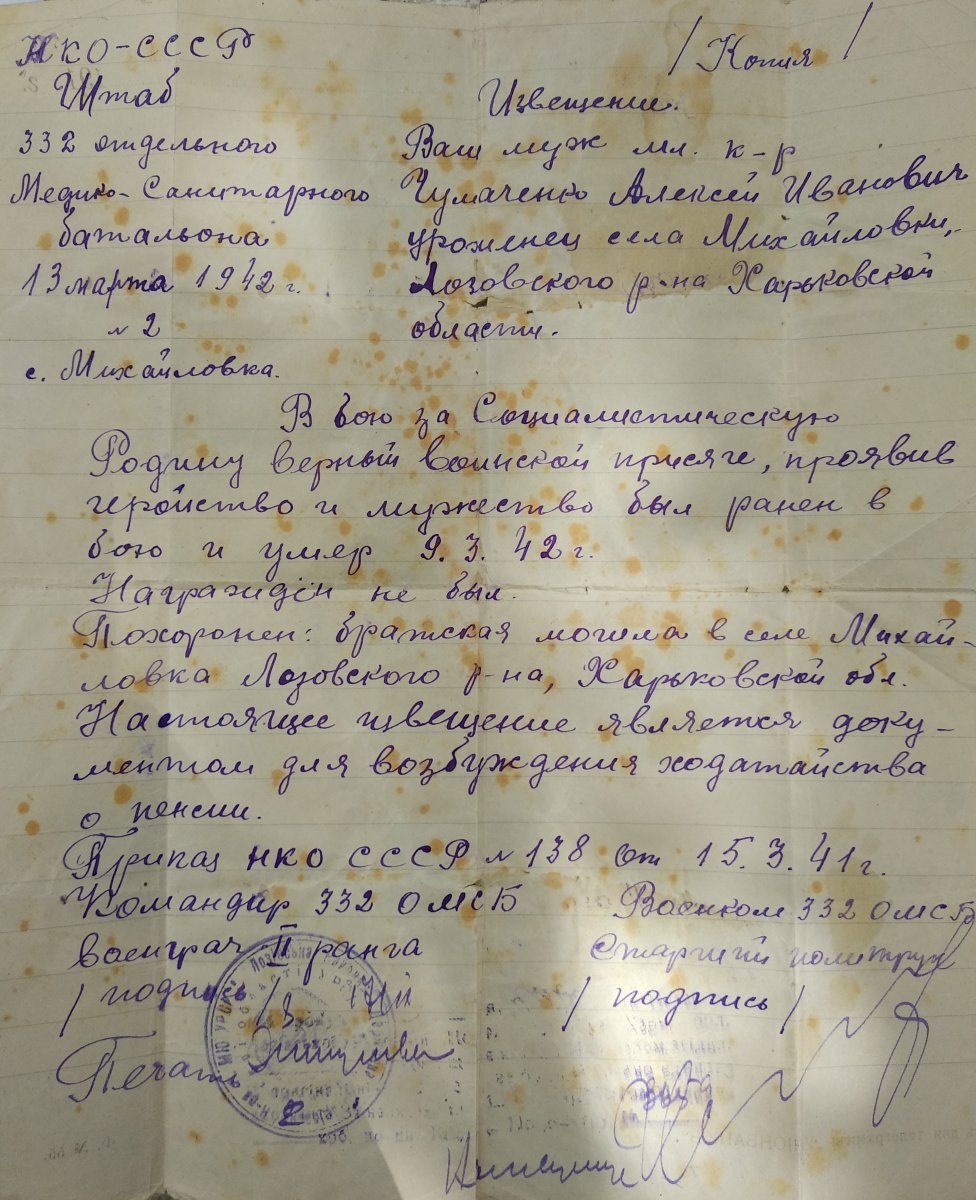 НКО-СССР
Штаб
332 отдельного
Медико-Санитарного
батальона
13 марта 1942 г.
№ 2
с. Михайловка.
/ Копия /
Извещение.
Ваш муж мл. к-р
Чумаченко Алексей Иванович
уроженец села Михайловки,
Лозовского р-на Харьковской
области.
В бою за Социалистическую
Родину верный воинской присяге, проявив
геройство и мужество был ранен в
бою и умер 9.3.42 г.
Награждён не был.
Похоронен: братская могила в селе Михай-
ловка Лозовского р-на, Харьковской обл.
Настоящее извещение является доку-
ментом для возбуждения ходатайства
о пенсии.
Приказ НКО СССР № 138 от 15.3.41 г.
Командир 332 ОМСБ
военврач II ранга
/ подпись /
Печать
Военком 332 ОМСБ
Старший политрук
/ подпись /